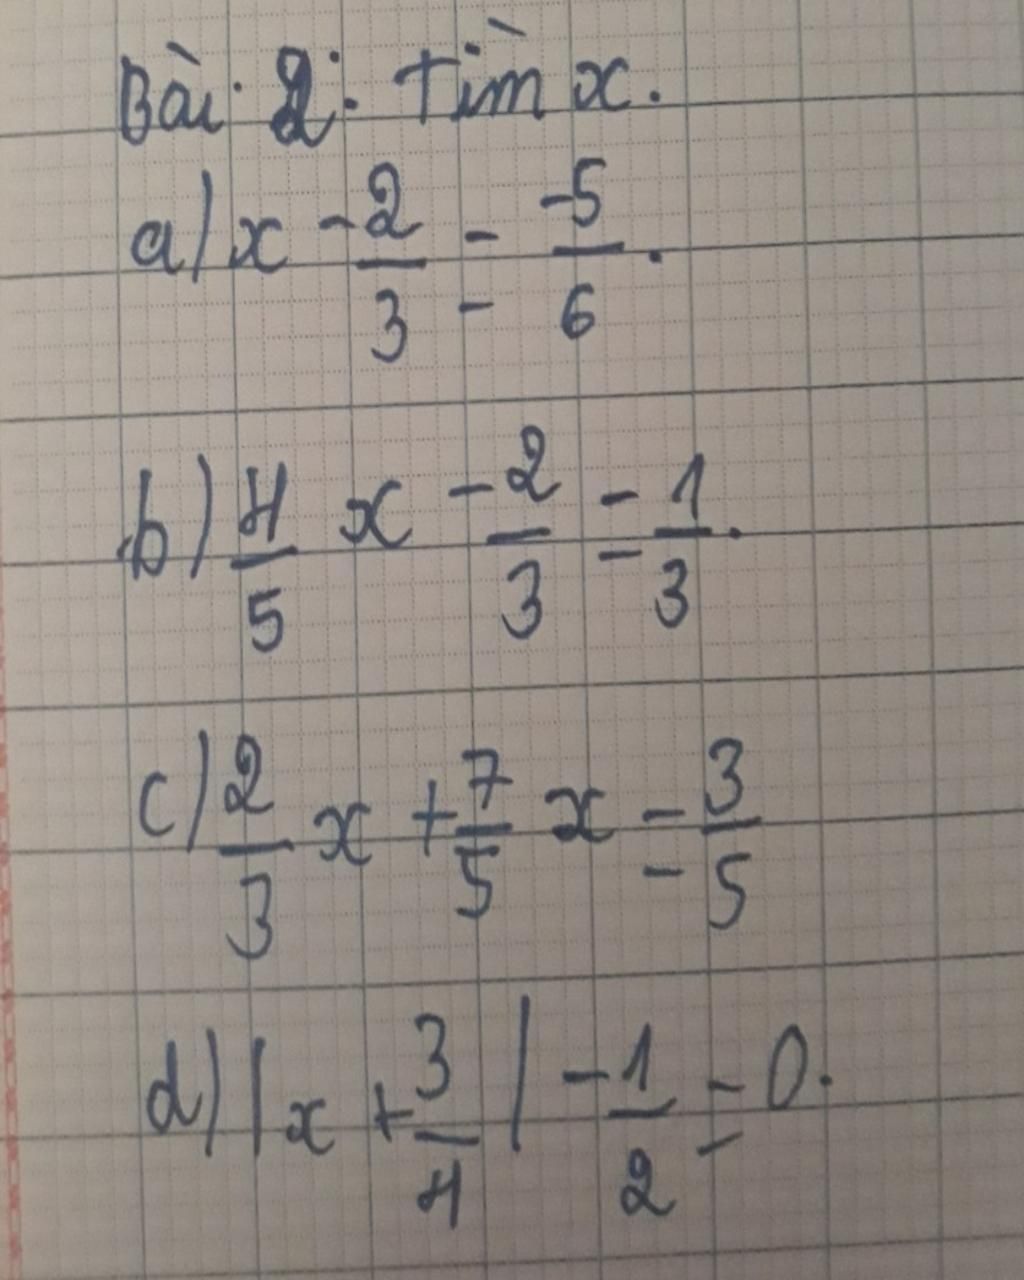 Bài 2: Tìm x.
a) x - 2/3 = -5/6.
b) 4/5 x - 2/3 = 1/3.
c) 2/3 x + 7/5 x = 3/5
d) |x + 3/4| - 1/2 = 0.